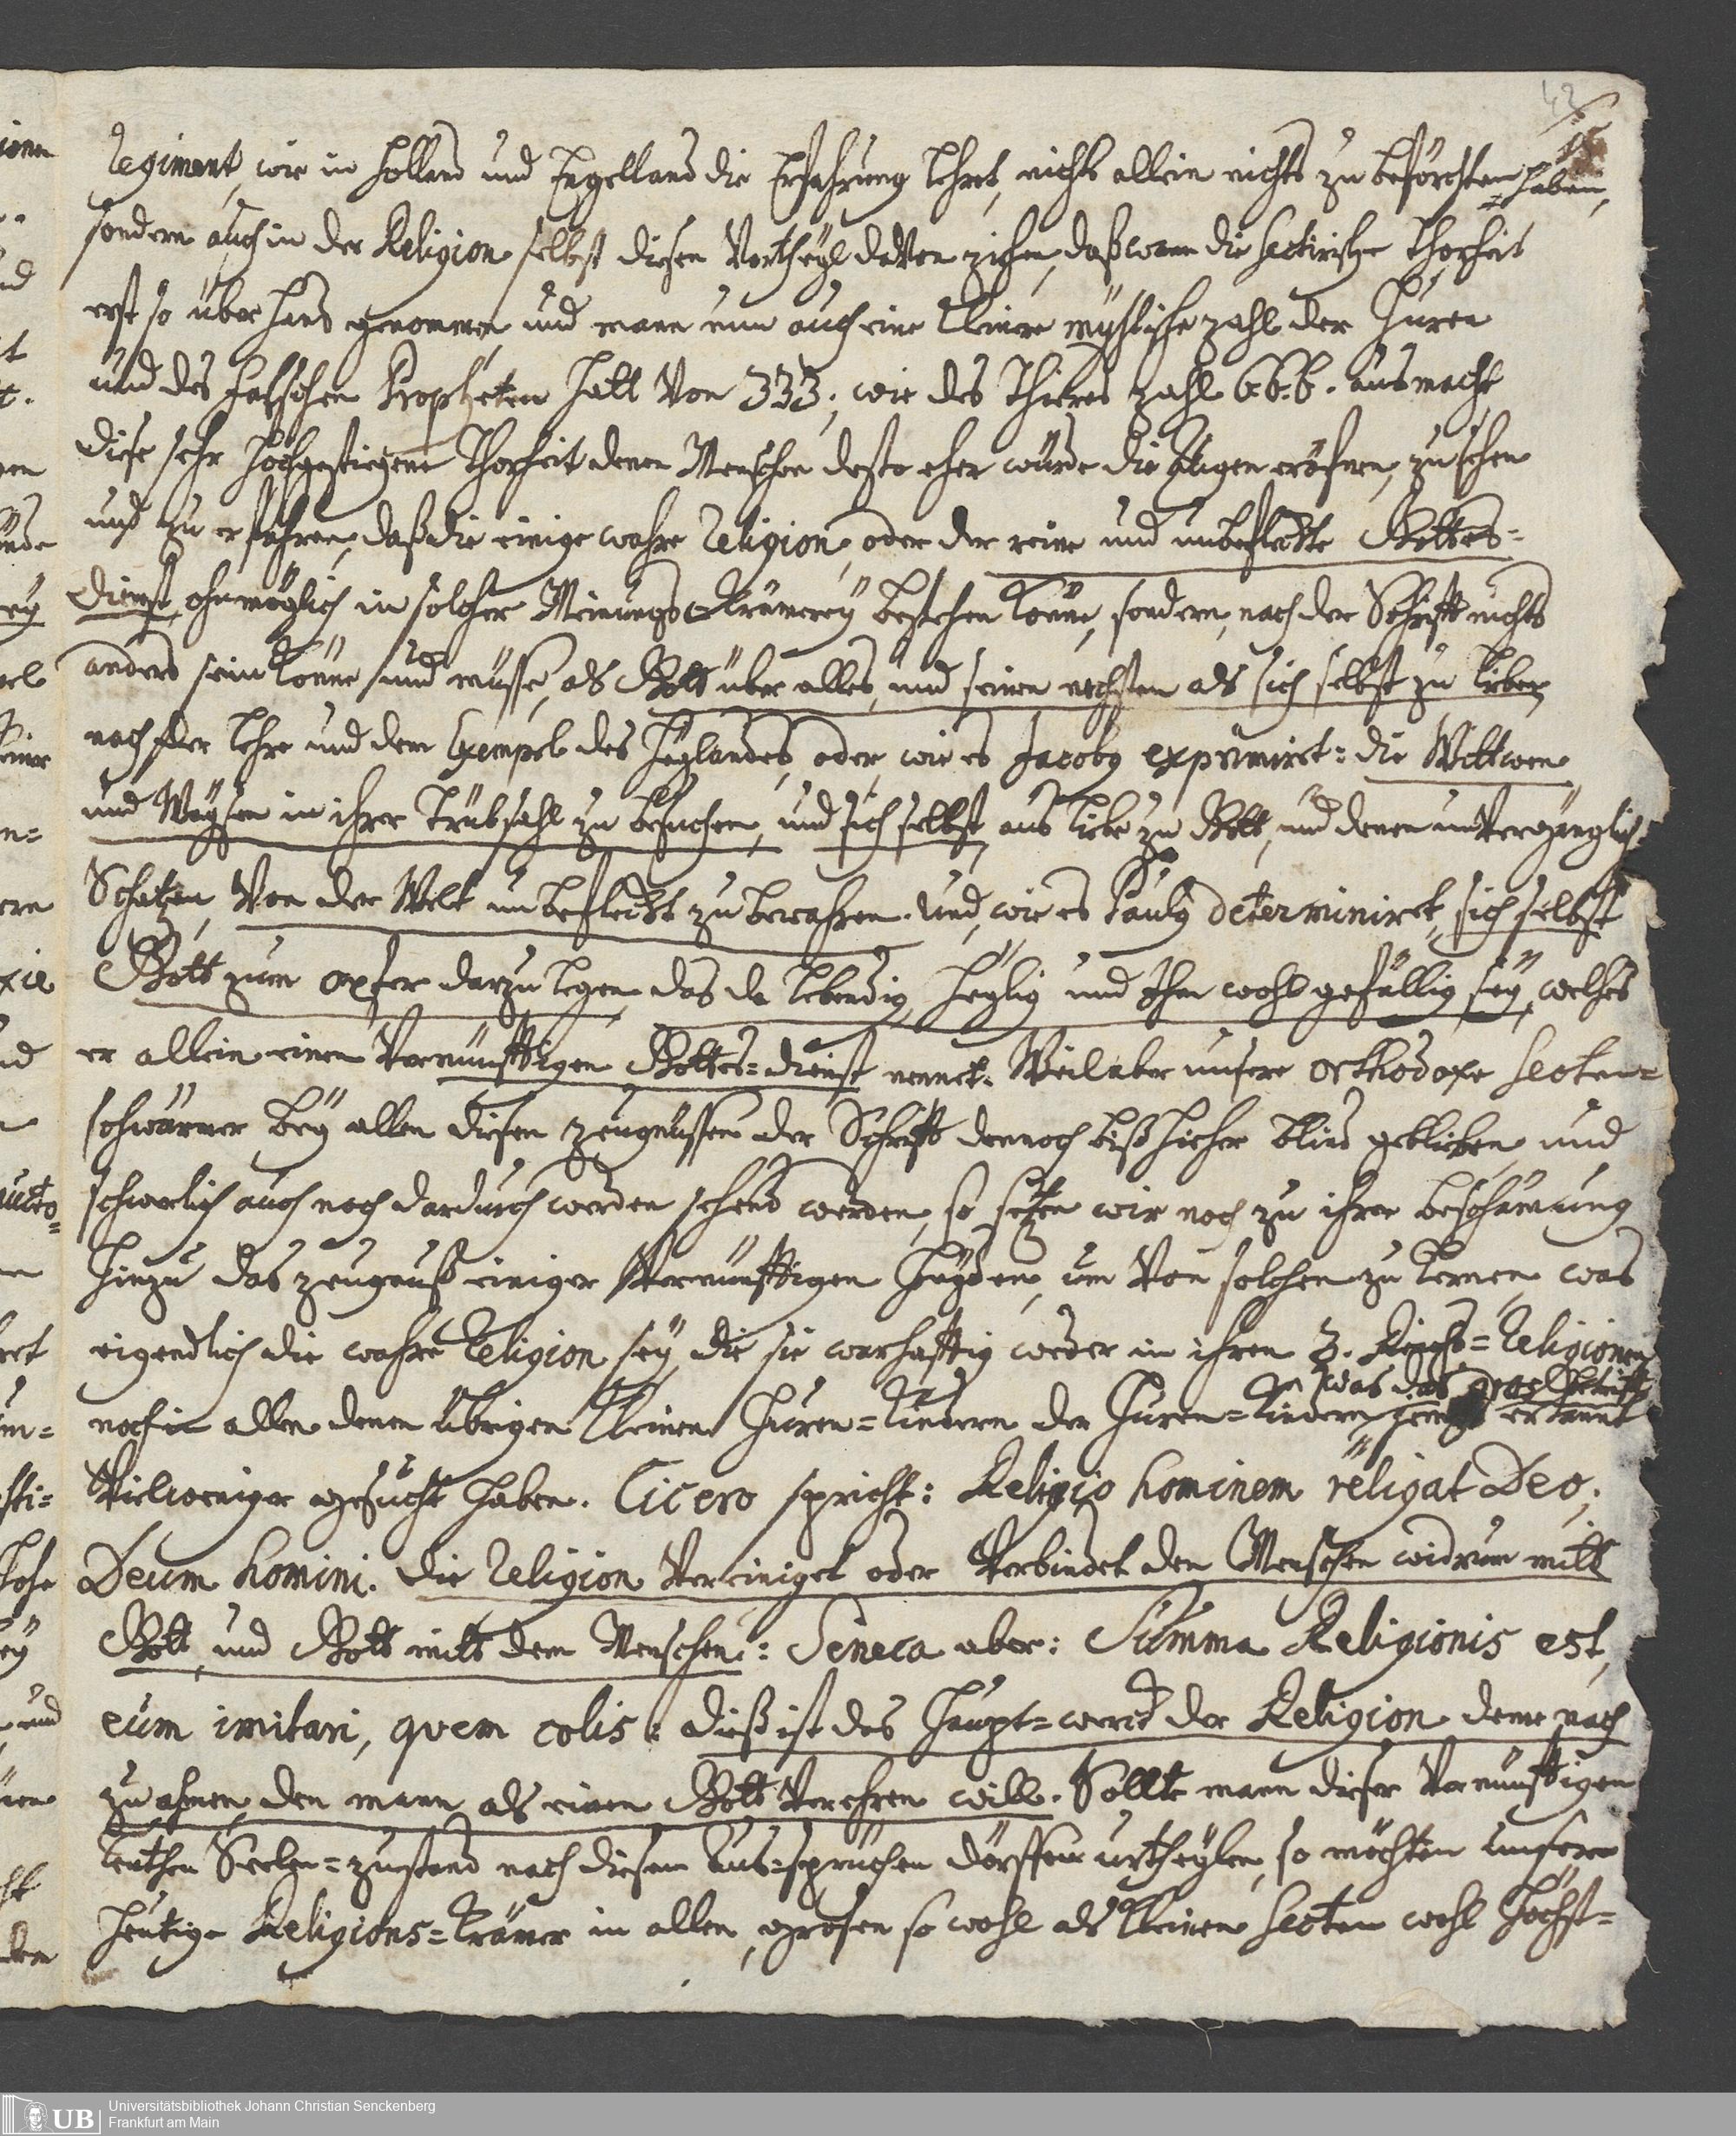 43
15
Regiment, wie in Holland und Engelland die Erfahrung lehret, nichts allein nichts zu beförchten haben,
sondern auch in der Religion selbst diesen Vortheyl davon ziehen, daß wann die sectirische Thorheit
erst so über hand genommen, und mann nun auch eine kleinere mystische zahl der Huren
und des falschen Propheten hatt von 333, wie des Thieres zahl 6.6.6. ausmacht,
diese sehr hochgestiegene Thorheit denen Menschen desto eher würde die Augen eröfnen, zu sehen
und zu erfahren, daß die einige wahre Religion, oder der reine und unbeflekte Gottes=
dienst, ohnmöglich in solcher Meinungs=Krämerey bestehen könne, sondern, nach der Schrifft nichts
anders sein könne und müsse, als Gott über alles, und seinen nechsten als sich selbst zu lieben,
nach der Lehre und dem Exempel des Heylandes, oder, wie es Jacobg exprimiret: die Wittwen
und Waysen in ihrer Trübsahl zu besuchen, und sich selbst, aus liebe zu Gott, und denen unvergänglich.
Schätzen, von der Welt unbeflekt zu bewahren. Und, wie es Paulg determiniret, sich selbst
Gott zum opfer darzu legen, das da lebendig, heylig und Ihm wohlgefällig sey, welches
er allein einen Vernünfftigen Gottes=dienst nennet. Weil aber unsere orthodoxe Secten=
schwärmer bey allen diesen zeugnüssen der Schrifft dennoch bißhieher blind geblieben und
schwerlich auch noch dardurch werden sehend werden, so setzen wir noch zu ihrer beschämung
hinzu das zeugnuß einiger Vernünfftigen Heyden, um von solchen zu lernen, was
eigendlich die wahre Religion sey, die sie warhafftig weder in ihren 3. Reichs=Religionen
was das betrifft
noch in allen denen übrigen kleinen Huren=Kindern der Huren=Kindern, erkannt
Vielweniger gesucht haben. Cicero spricht: Religio hominem religat Deo,
Deum homini. die Religion vereiniget oder verbindet den Menschen widrum mitt
Gott, und Gott mitt dem Menschen: Seneca aber: Summa Religionis est,
eum imitari, quem colis: dieß ist das Haupt=werck der Religion deme nach
zu ahmen, den mann als einen Gott verehren will. Sollte mann dieser Vernünfftigen
Leuthen Seelen=zustand nach diesen Aus=sprüchen dörffen urtheylen, so möchten unsere
heutige Religions=Krämer in allen, grosen so wohl als kleinen Secten wohl höchst=
UB
Universitätsbibliothek Johann Christian Senckenberg
Frankfurt am Main